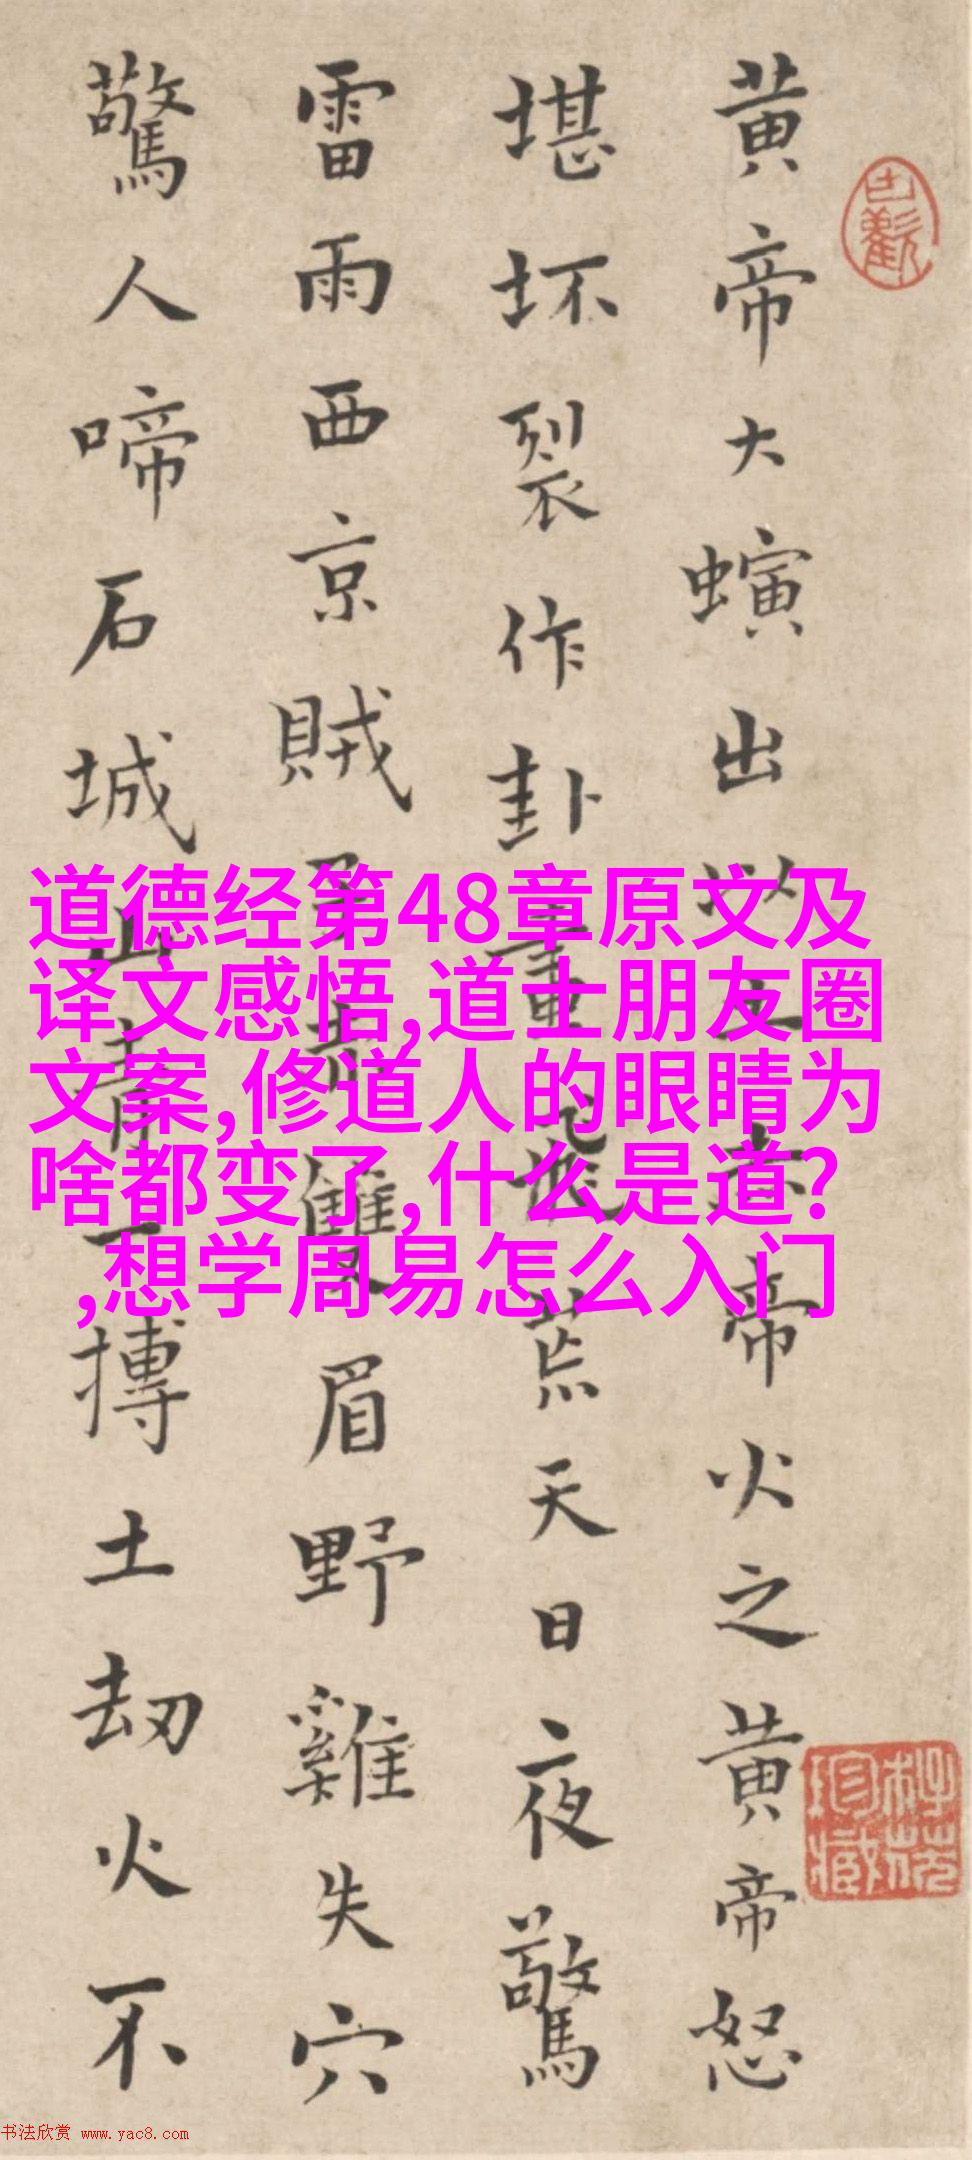 黃帝大螾出以土帝火之黃帝怒
堪坏裂作卦畫飛荒天日夜驚
雷雨西京賊平赤雙眉野雞失穴
驚人啼石城山青一摶土劫火不
道德经第48章原文及
译文感悟,道士朋友圈
文案,修道人的眼睛为
啥都变了,什么是道?
,想学周易怎么入门
书法欣赏 www.yac8.com